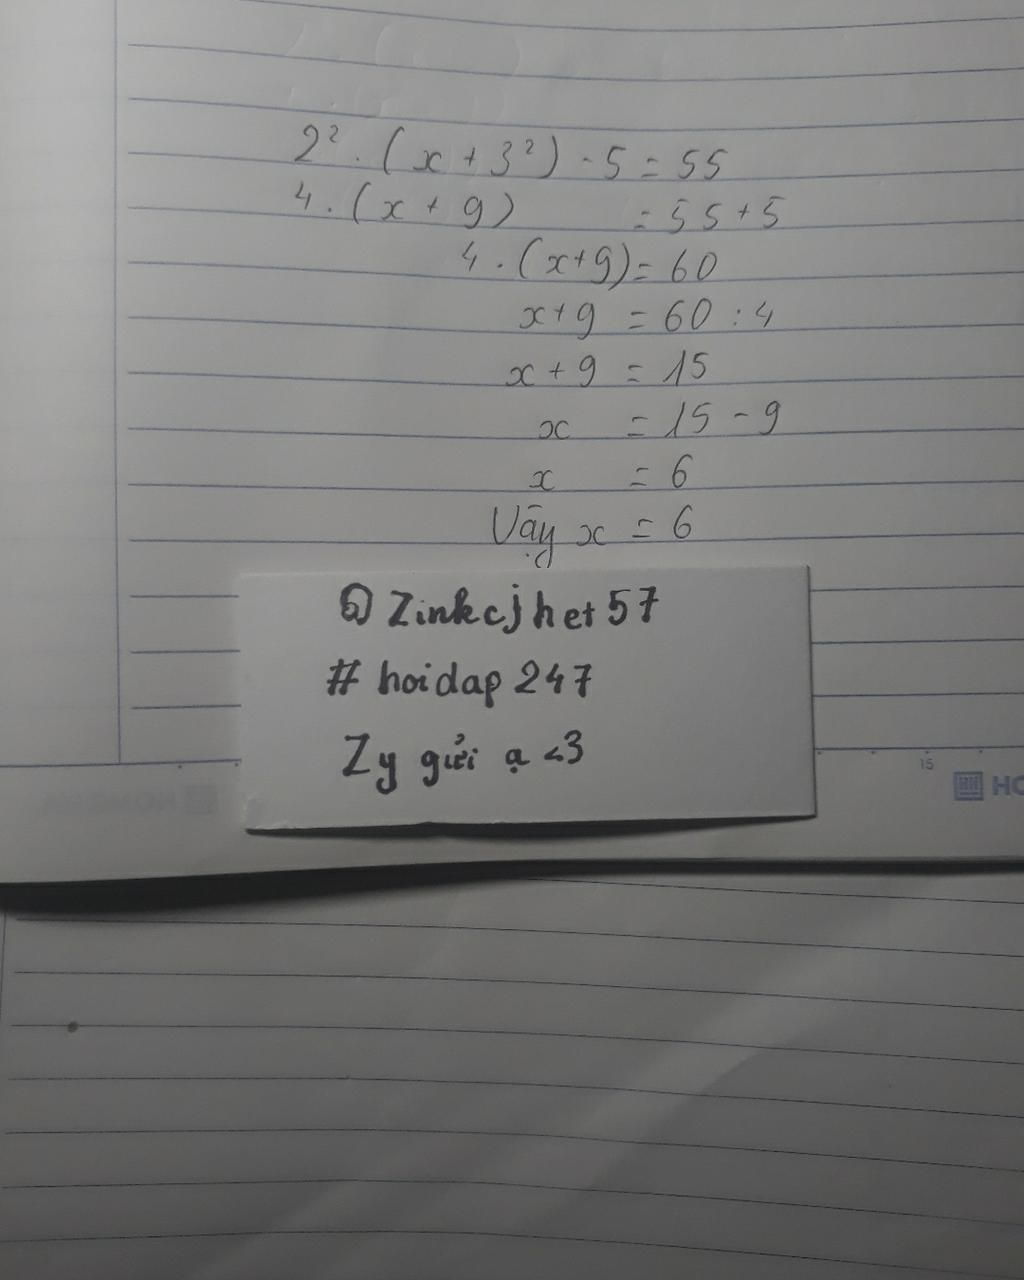 2² . (x + 3²) - 5 = 55
4 . (x + 9) = 55 + 5
4 . (x+9) = 60
x+9 = 60 : 4
x + 9 = 15
x = 15 - 9
x = 6
Vậy x = 6
@Zinkcjhet57
# hoidap247
Zy gửi ạ <3
15
HO